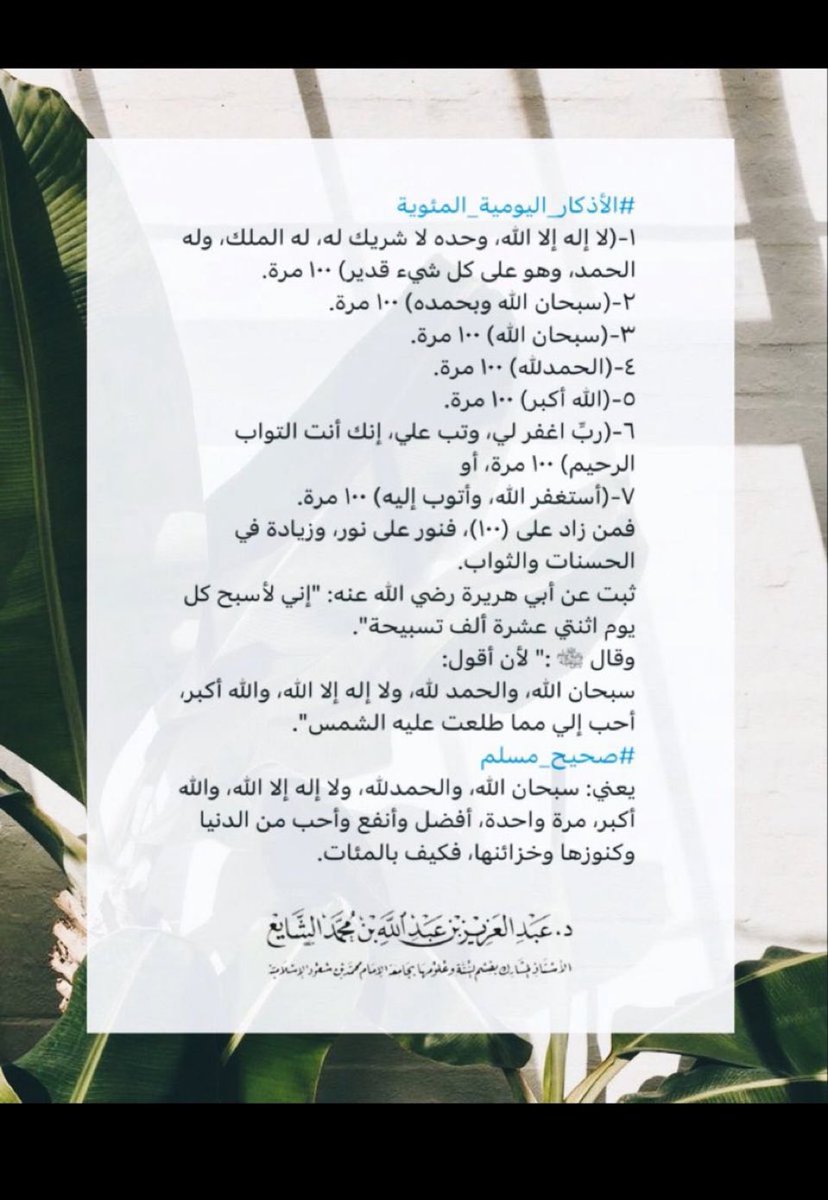 #الأذكار_اليومية_المئوية
١-(لا إله إلا الله، وحده لا شريك له، له الملك، وله
الحمد، وهو على كل شيء قدير) ١٠٠ مرة.
٢-(سبحان الله وبحمده) ١٠٠ مرة.
٣-(سبحان الله) ١٠٠ مرة.
٤-(الحمدلله) ١٠٠ مرة.
٥-(الله أكبر) ١٠٠ مرة.
٦-(ربِّ اغفر لي، وتب علي، إنك أنت التواب
الرحيم) ١٠٠ مرة، أو
٧-(أستغفر الله، وأتوب إليه) ١٠٠ مرة.
فمن زاد على (١٠٠)، فنور على نور، وزيادة في
الحسنات والثواب.
ثبت عن أبي هريرة رضي الله عنه: "إني لأسبح كل
يوم اثنتي عشرة ألف تسبيحة".
وقال ﷺ :" لأن أقول:
سبحان الله، والحمد لله، ولا إله إلا الله، والله أكبر،
أحب إلي مما طلعت عليه الشمس".
#صحيح_مسلم
يعني: سبحان الله، والحمدلله، ولا إله إلا الله، والله
أكبر، مرة واحدة، أفضل وأنفع وأحب من الدنيا
وكنوزها وخزائنها، فكيف بالمئات.
د. عَبْدِ العَزِيْزِ بْنِ عَبْدِ اللهِ بْنِ مُحَمَّدْ الشَّايِعْ
الأستاذ المشارك بقسم السنة وعلومها بجامعة الإمام محمد بن سعود الإسلامية